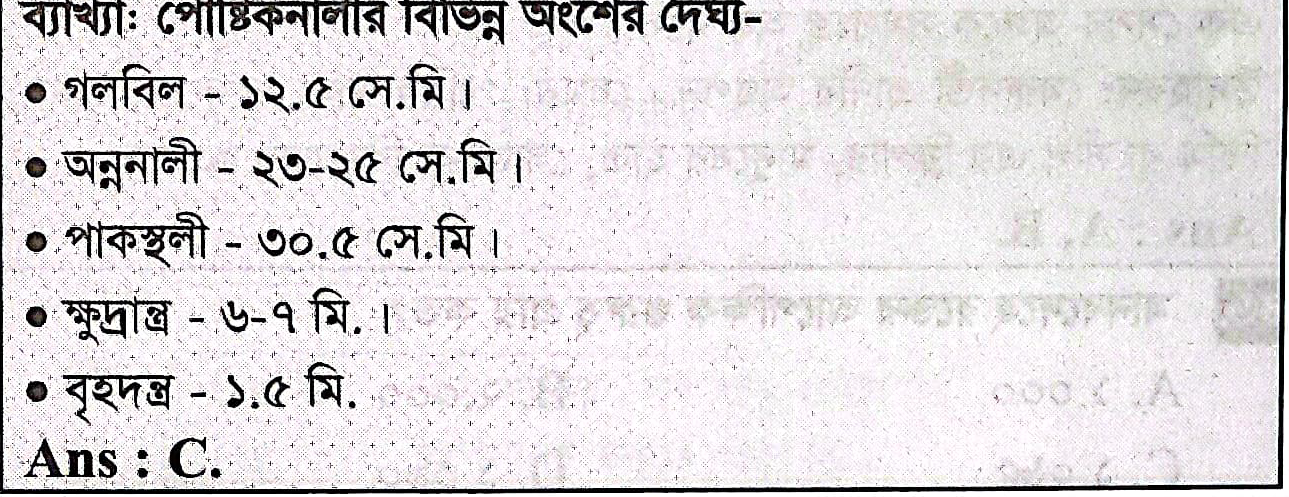 ব্যাখ্যা: পৌষ্টিকনালীর বিভিন্ন অংশের দৈর্ঘ্য-
• গলবিল - ১২.৫ সে.মি।
• অন্ননালী - ২৩-২৫ সে.মি।
• পাকস্থলী - ৩০.৫ সে.মি।
• ক্ষুদ্রান্ত্র - ৬-৭ মি.।
• বৃহদন্ত্র - ১.৫ মি.
Ans : C.